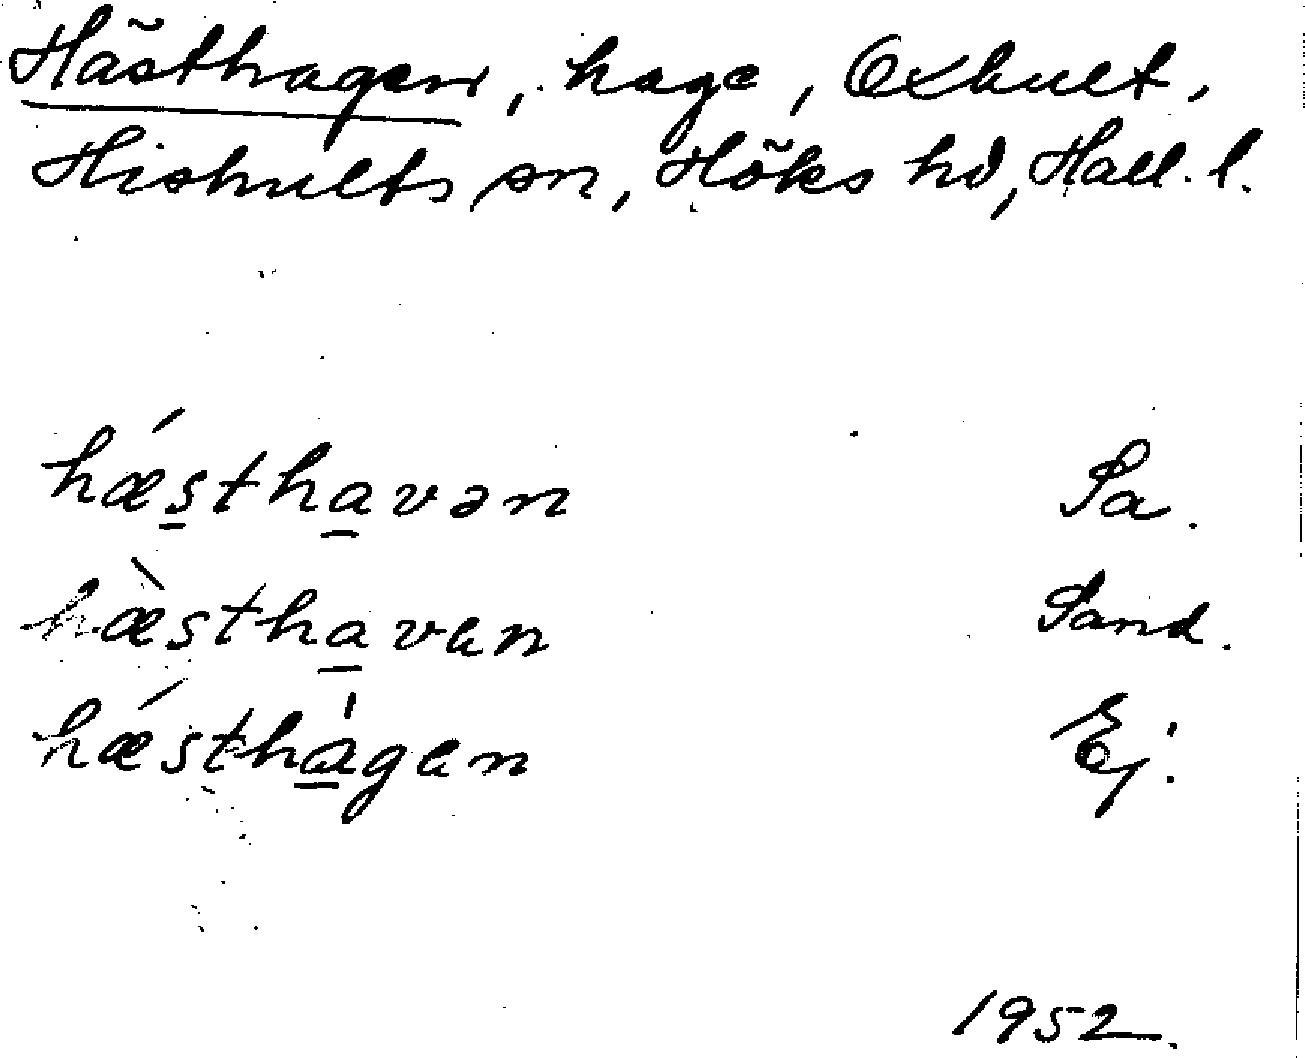 Hästhagen, hage, Oxhult,
Hishults sn, Höks hd, Hall. l.
hǽs̲tha̲vən Sa.
hæ̀stha̲van Sand.
hǽsthà̲gan Ej.
1952.